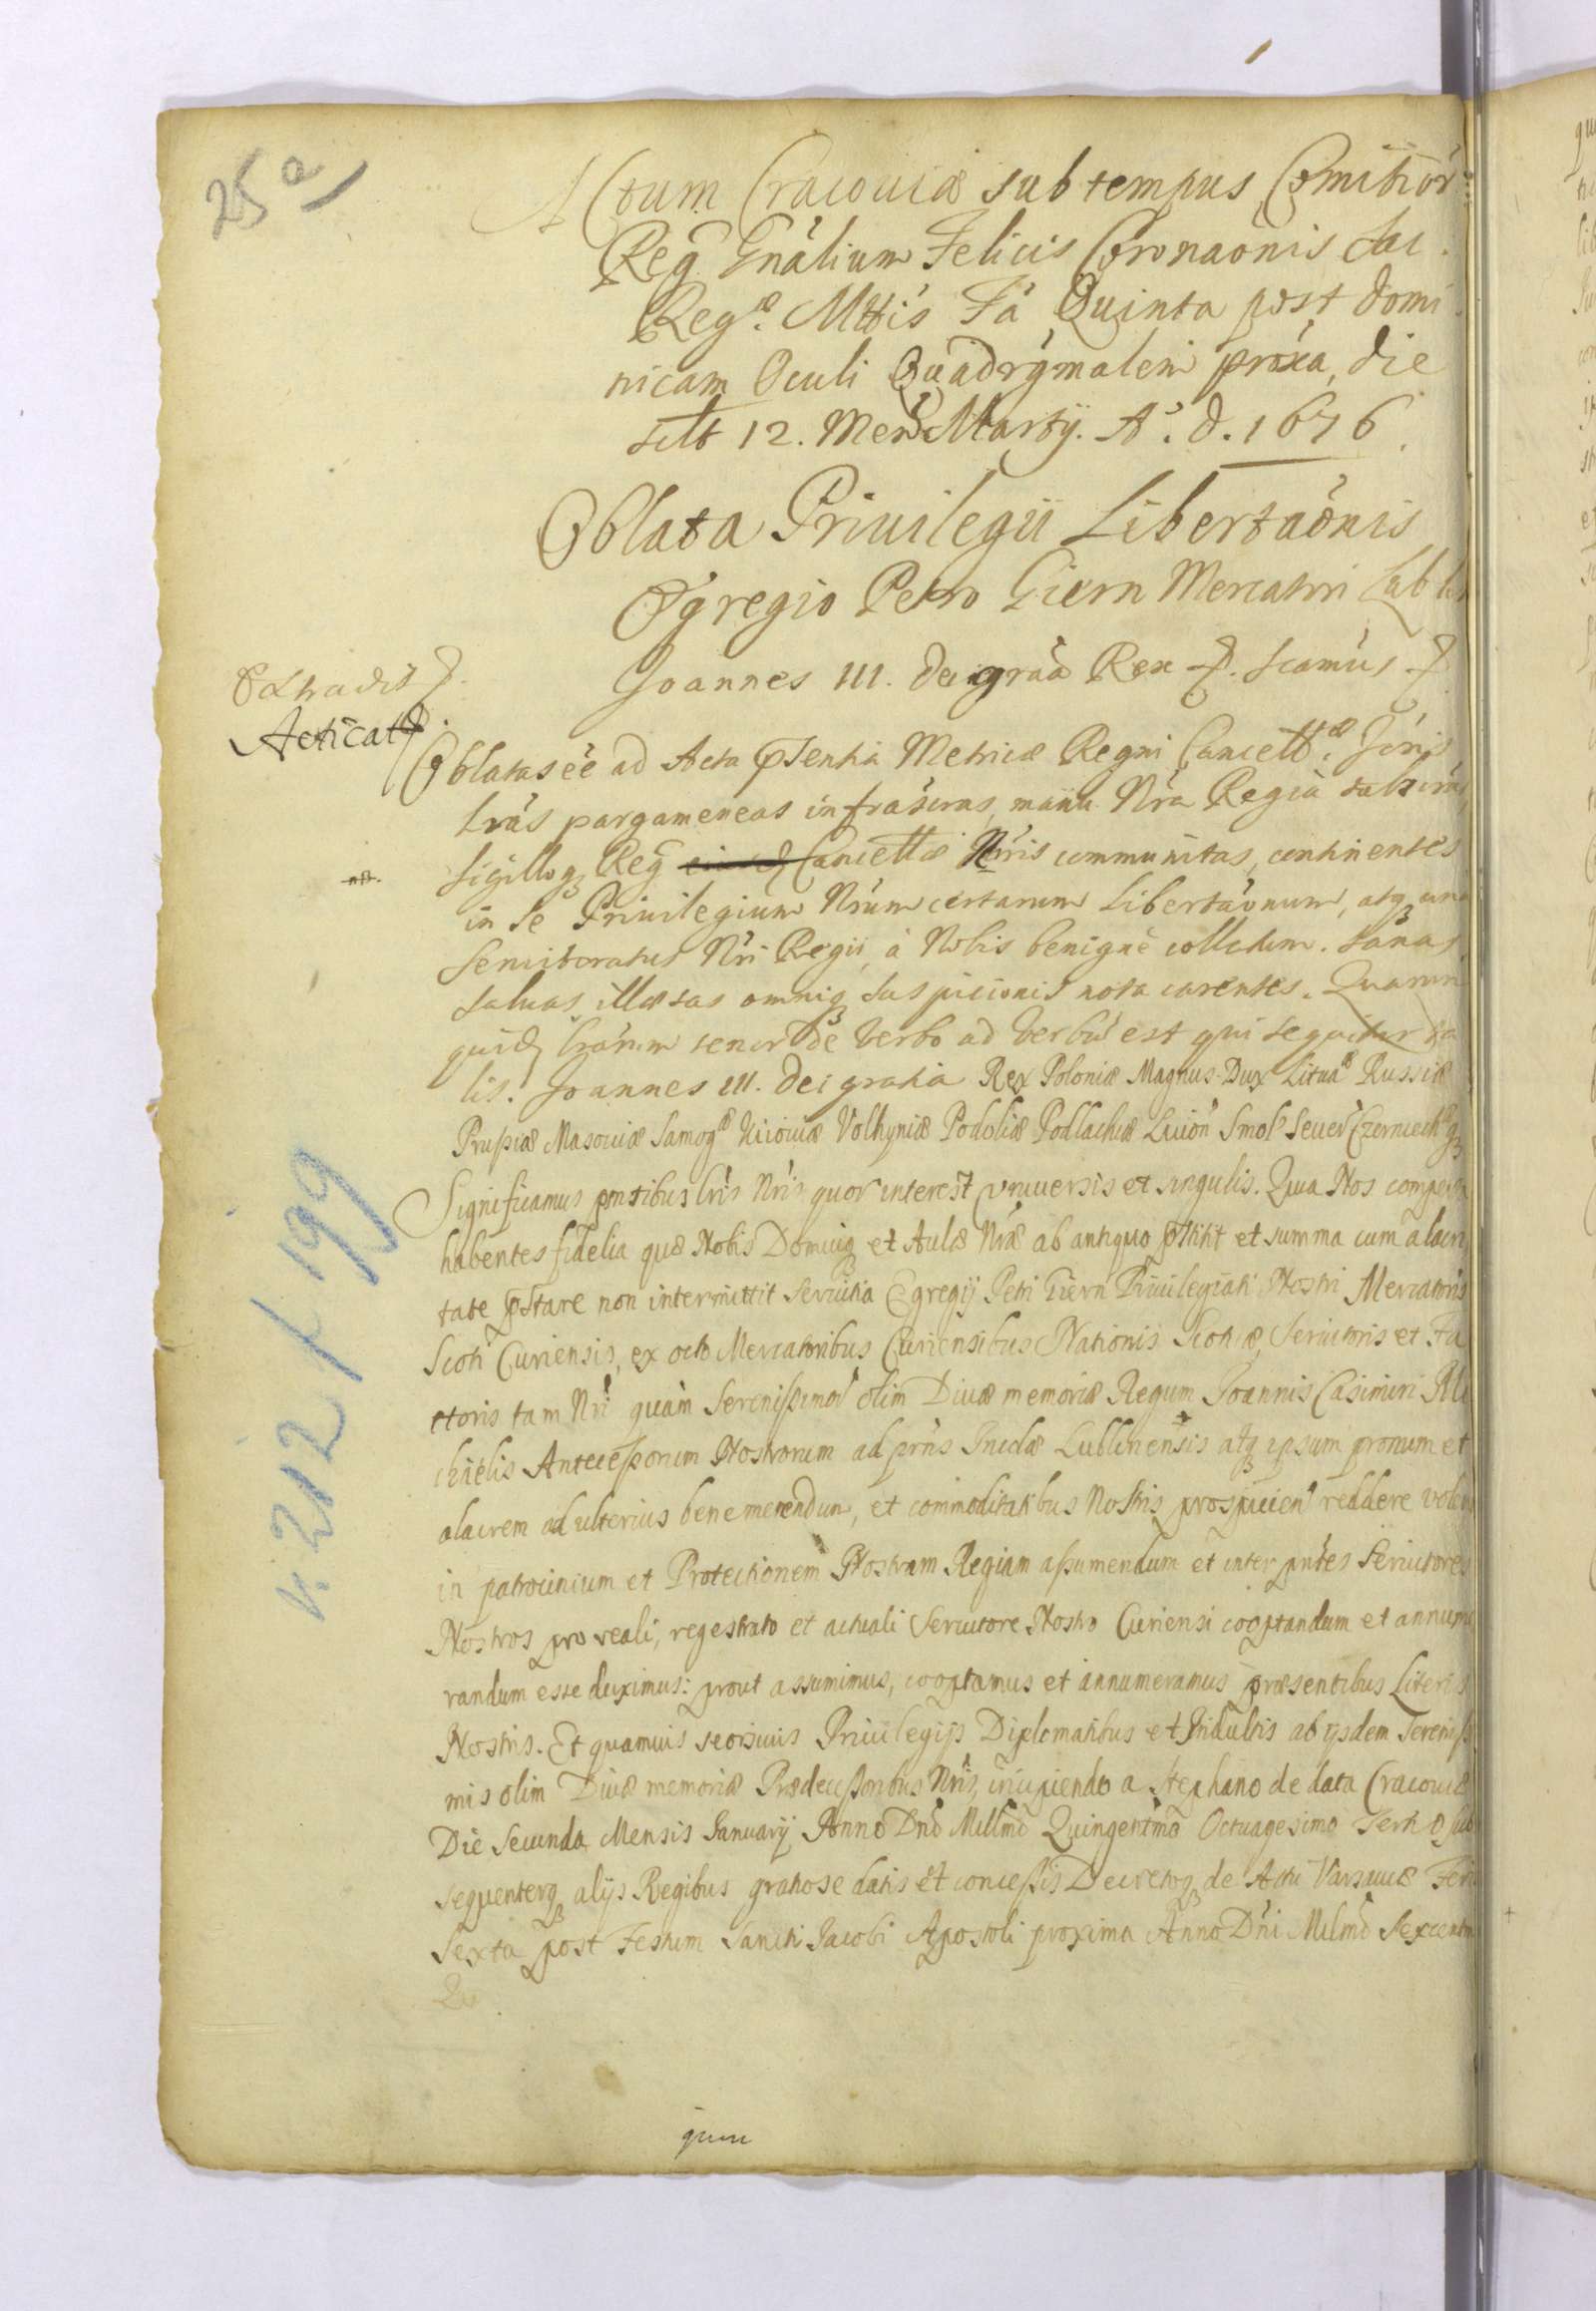 25 a
Actum Cracouiæ sub tempus Comitior
Reg Gnalium Felicis Coronaonis Sac.
Regæ. Mttis Fa Quinta post domi
nicam Oculi Quadrgmalem proxa, die
scilt 12. Mens Martij. A. d. 1676.
Oblata Priuilegii Libertaonis
Egregio Petro Giern Mercatori Lubli
Joannes III. Dei graa Rex . Scamus
Extradit
Acticat.
Oblatas eē ad Acta psentia Metricæ Regni Cancellæ
lras pargameneas infrascras, manu Nra Regia subscras,
sigilloq Reg Cancellæ Nris communitas, continentes
in se Priuilegium Nrum certarum Libertaonum, atq una
Seruitoratus Nri Regii, à Nobis benignè collatum. Sanas
saluas illæsas omniq suspicionis nota carentes. Quarum
quid lrarum tenor de Verbo ad Verbū est qui sequitur ta
lis. Joannes III. Dei gratia Rex Poloniæ Magnus Dux Lituæ Russiæ
Prussiæ Masouiæ Samogæ Kiiouiæ Volhyniæ Podoliæ Podlachiæ Liuon Smol Seuer Czerniech q
Significamus pntibus lris Nris quor interest vniuersis et singulis. Quia Nos comperta
habentes fidelia quæ Nobis Domuiq et Aulæ Nræ ab antiquo pstitit et summa cum alacri
tate pstare non intermittit seruitia Egregij Petri Giern Priuilegiati Nostri Mercatoris
Scoti Curiensis, ex octo Mercatoribus Curiensibus Nationis Scoticæ, Seruitoris et Fa
ctoris tam Nri quàm Serenissimor olim Diuæ memoriæ Regum Joannis Casimiri Mi
chaelis Antecessorum Nostrorum ad prns Incolæ Lublinensis atq ipsum pronum et
alacrem ad ulterius bene merendum, et commoditatibus Nostris prospicien reddere volen
in patrocinium et Protectionem Nostram Regiam assumendum et inter pntes Seruitores
Nostros pro reali, regestrato et actuali Seruitore Nostro Curiensi cooptandum et annume
randum esse duximus: prout assumimus, cooptamus et annumeramus præsentibus Literis
Nostris. Et quamuis seorsiuis Priuilegijs Diplomatibus et Indultis ab ijsdem Serenissi
mis olim Diuæ memoriæ Prædecessoribus Nris, incipiendo a Stephano de data Cracouiæ
Die Secunda Mensis Januarij Anno Dnō Millmo Quingentmo Octuagesimo Tertio sub
sequenterq alijs Regibus gratiose datis et concessis Decretoq de Actu Varsauiæ Feri
Sexta post Festum Sancti Jacobi Apostoli proxima Anno Dni Milmo Sexcentmo
k. 212 / 199
quin